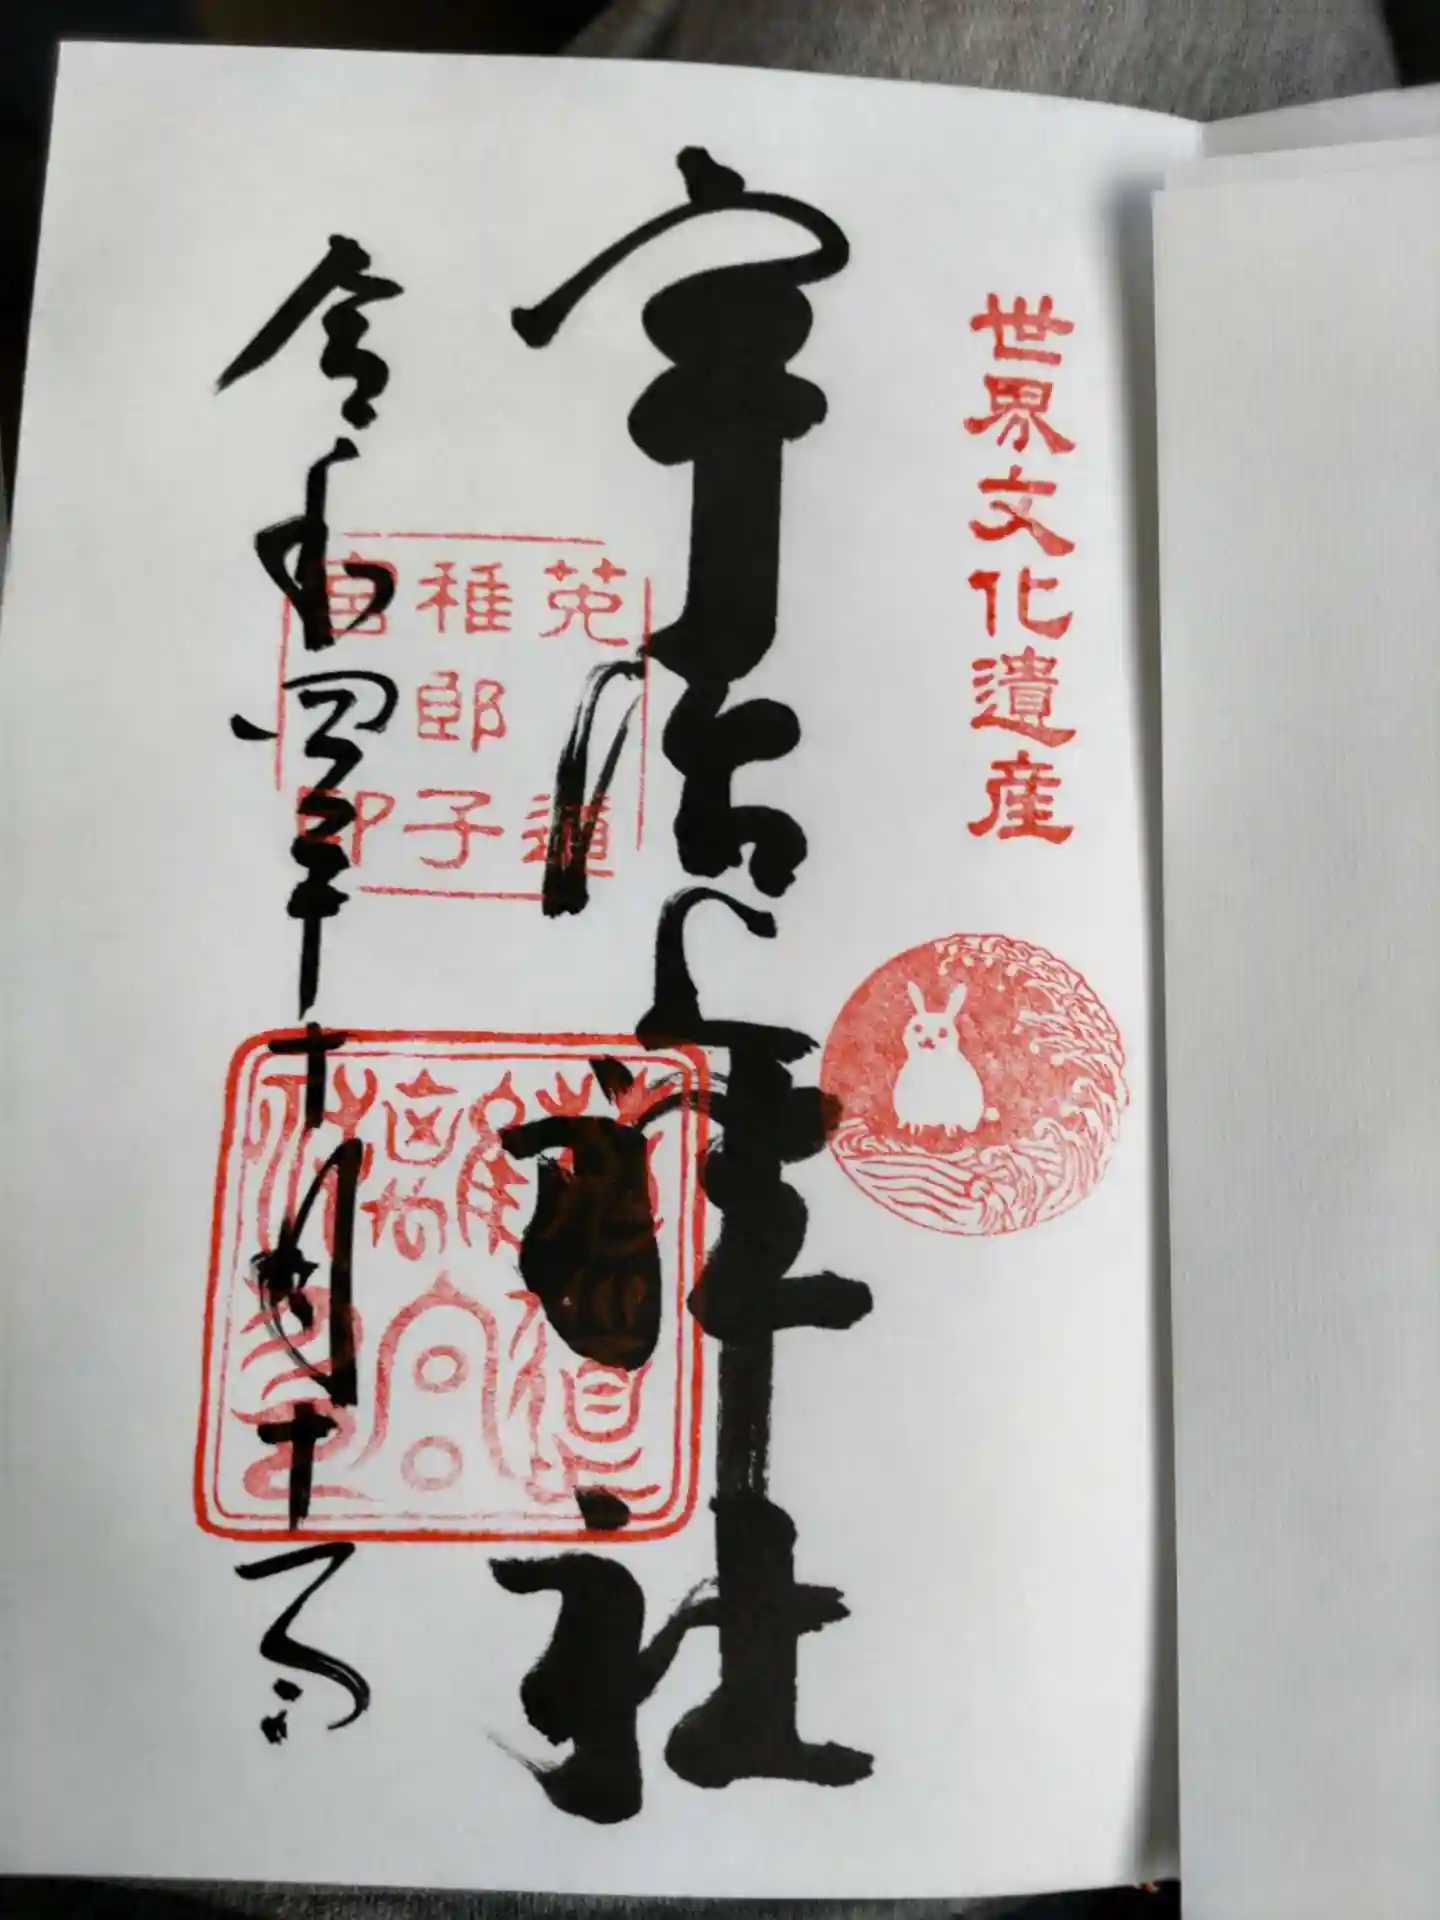 世界文化遺産
宇治上神社
菟道
稚郎子
宮印
令和四年十月十日